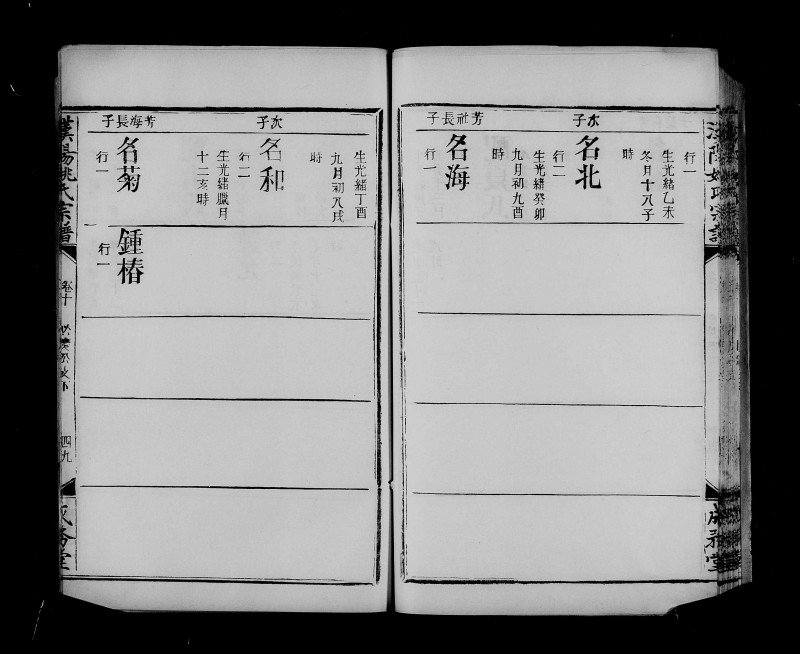 行一
生光緒乙未
冬月十八子
時
次子
名北
行二
生光緒癸卯
九月初九酉
時
芳社長子
名海
行一
生光緒丁酉
九月初八戌
時
次子
名和
行二
生光緒臘月
十二亥時
芳海長子
名菊
行一
鍾椿
行一
漢陽姚氏宗譜
卷十
四九
成務堂
成務堂